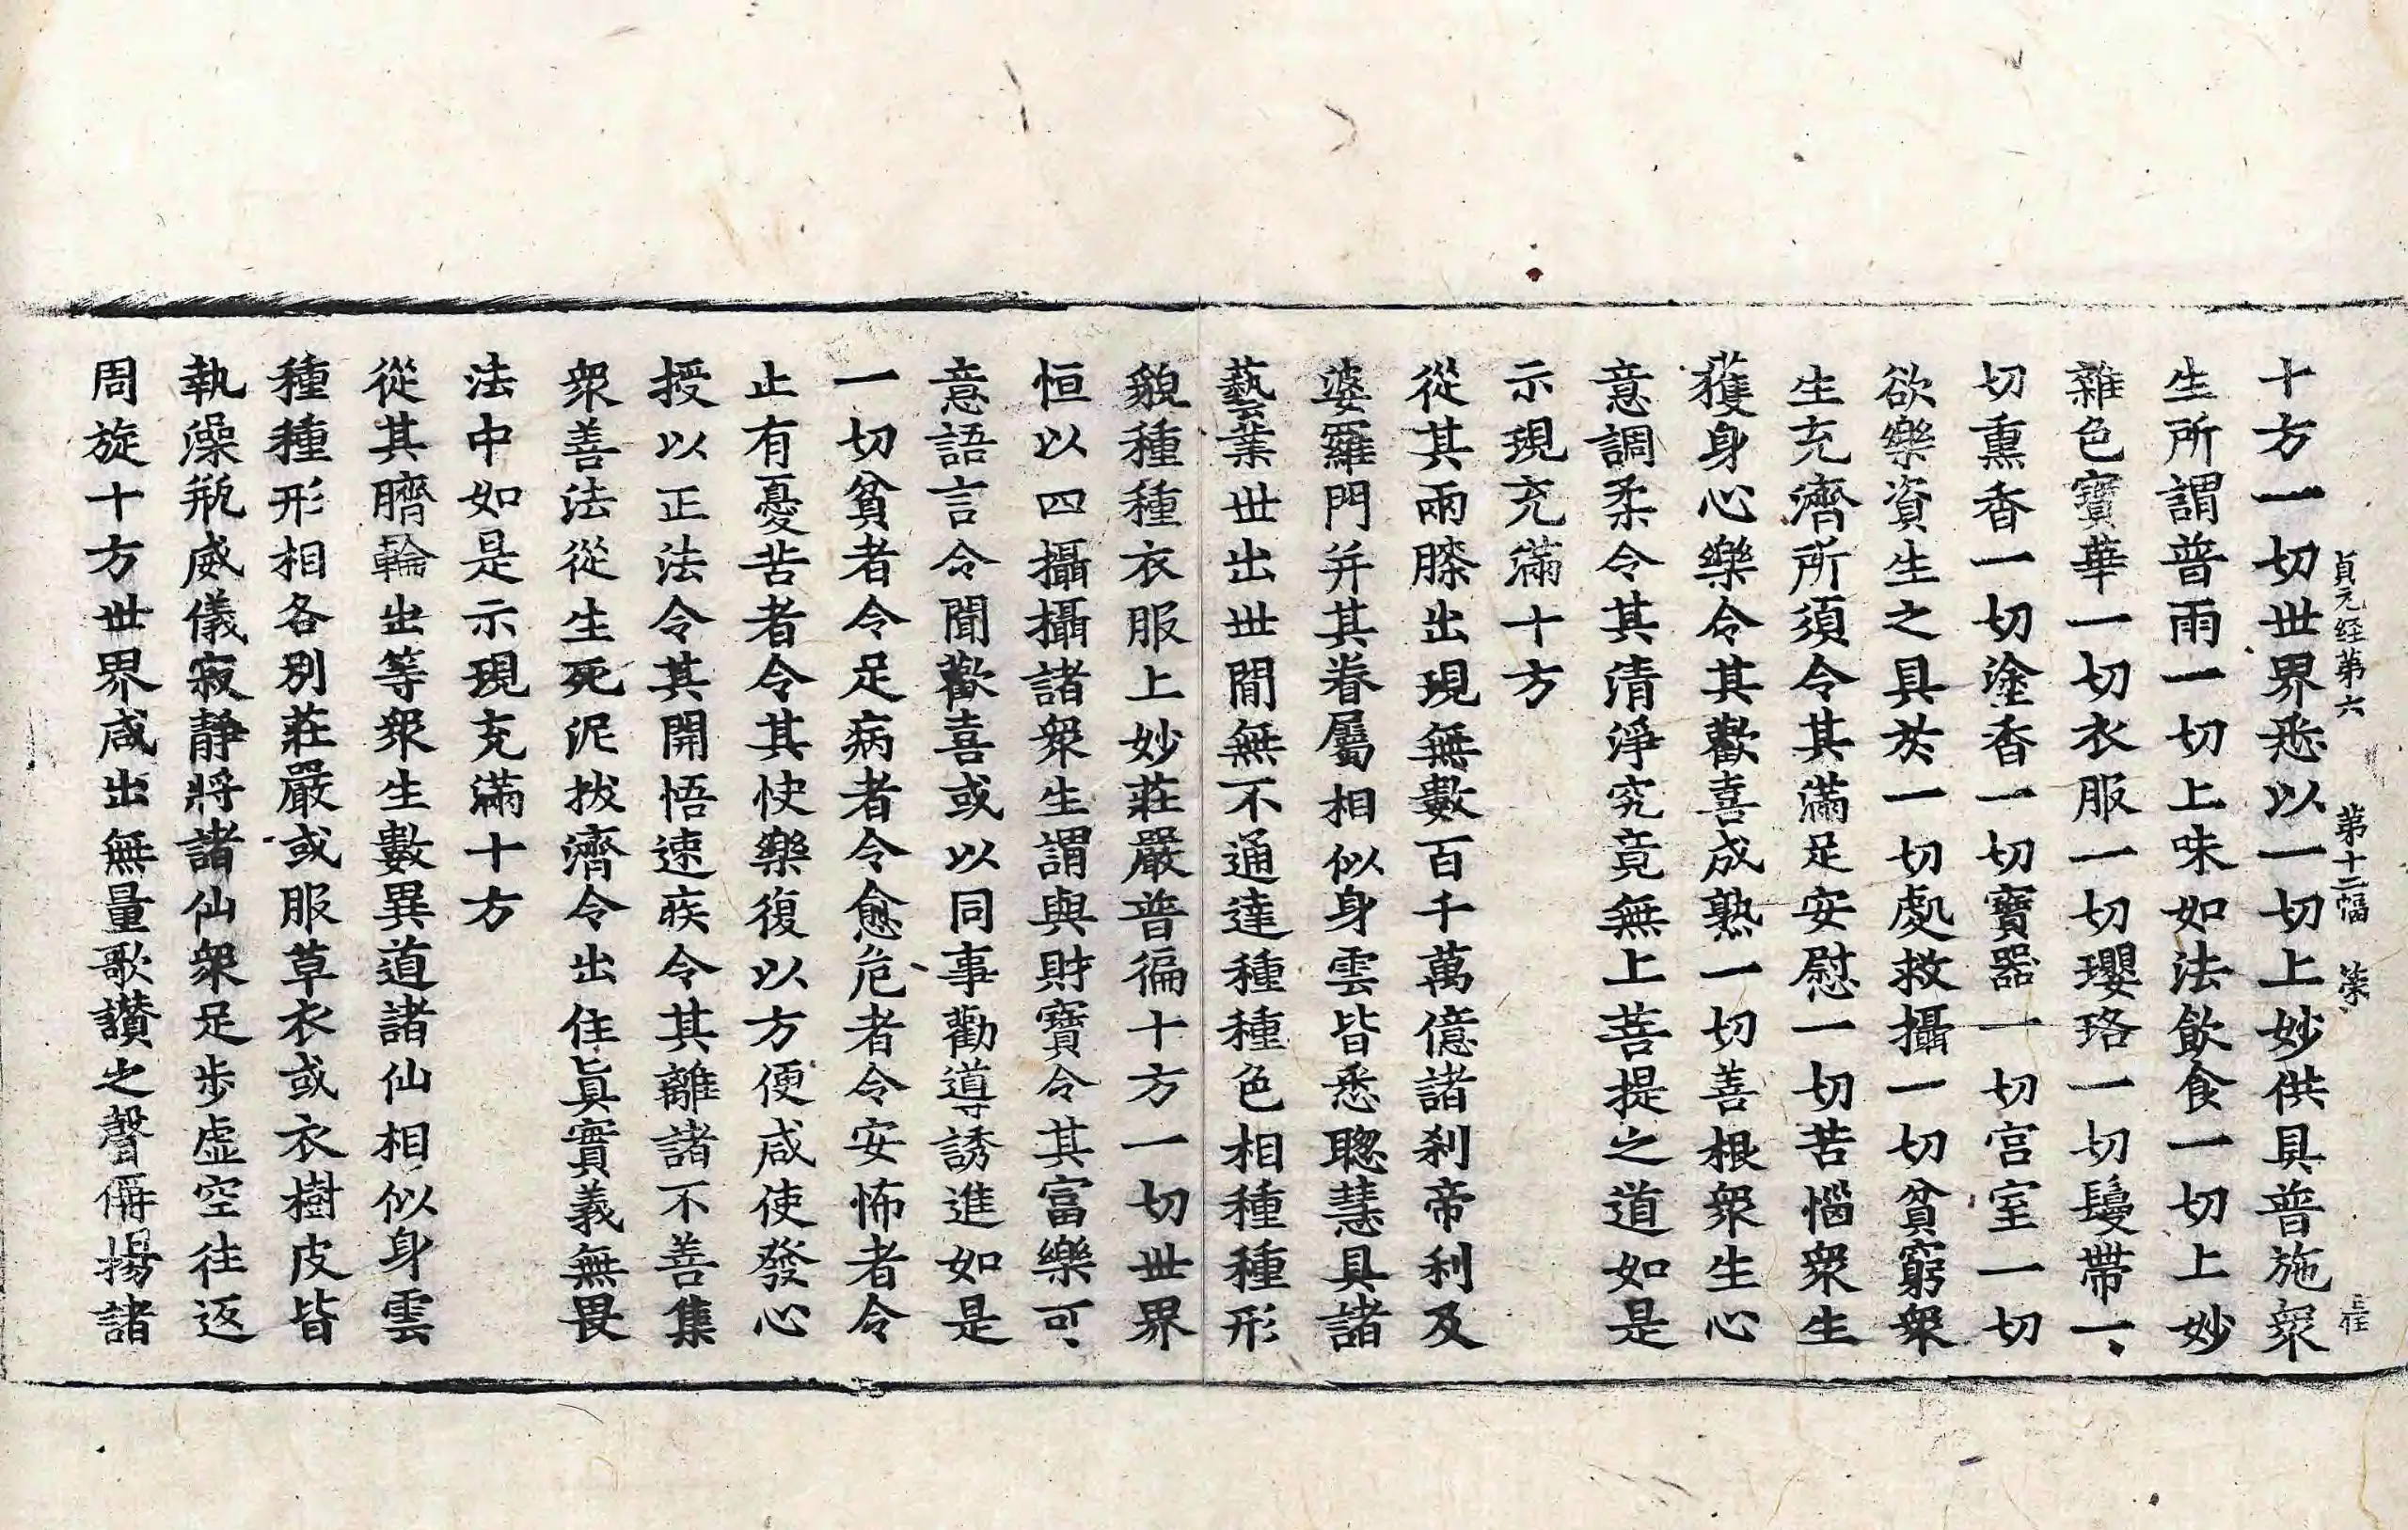 貞元经第六　第十二幅　榮
十方一切世界悉以一切上妙供具普施衆
生所謂普雨一切上味如法飲食一切上妙
雜色寶華一切衣服一切瓔珞一切鬘帶一
切熏香一切塗香一切寶器一切宮室一切
欲樂資生之具於一切處救攝一切貧窮衆
生充濟所須令其滿足安慰一切苦惱衆生
獲身心樂令其歡喜成熟一切善根衆生心
意調柔令其清淨究竟無上菩提之道如是
示現充滿十方
從其兩膝出現無數百千萬億諸刹帝利及
婆羅門并其眷屬相似身雲皆悉聰慧具諸
藝業世出世間無不通達種種色相種種形
貌種種衣服上妙莊嚴普徧十方一切世界
恒以四攝攝諸衆生謂與財寶令其富樂可
意語言令聞歡喜或以同事勸導誘進如是
一切貧者令足病者令愈危者令安怖者令
止有憂苦者令其快樂復以方便咸使發心
授以正法令其開悟速疾令其離諸不善集
衆善法從生死泥拔濟令出住眞實義無畏
法中如是示現充滿十方
從其臍輪出等衆生數異道諸仙相似身雲
種種形相各別莊嚴或服草衣或衣樹皮皆
執澡瓶威儀寂靜將諸仙衆足步虛空往返
周旋十方世界咸出無量歌讚之聲偁揚諸